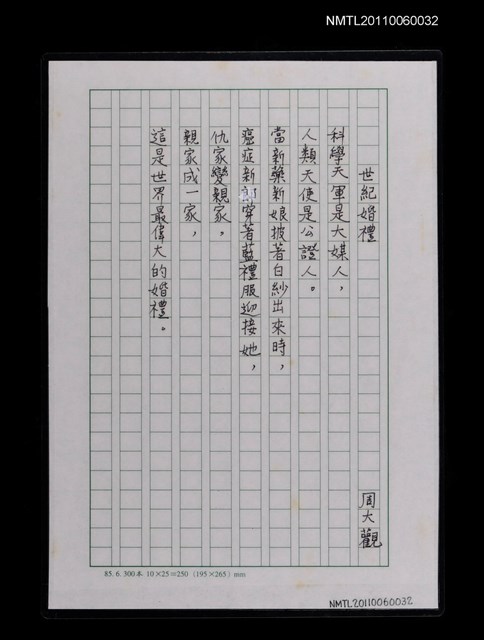 NMTL20110060032
世紀婚禮
周大觀
科學天軍是大媒人，
人類天使是公證人。
當新藥新娘披著白紗出來時，
癌症新郎穿著藍禮服迎接她，
仇家變親家。
親家成一家，
這是世界最偉大的婚禮。
85. 6. 300本 10×25=250 (195×265) mm
NMTL20110060032